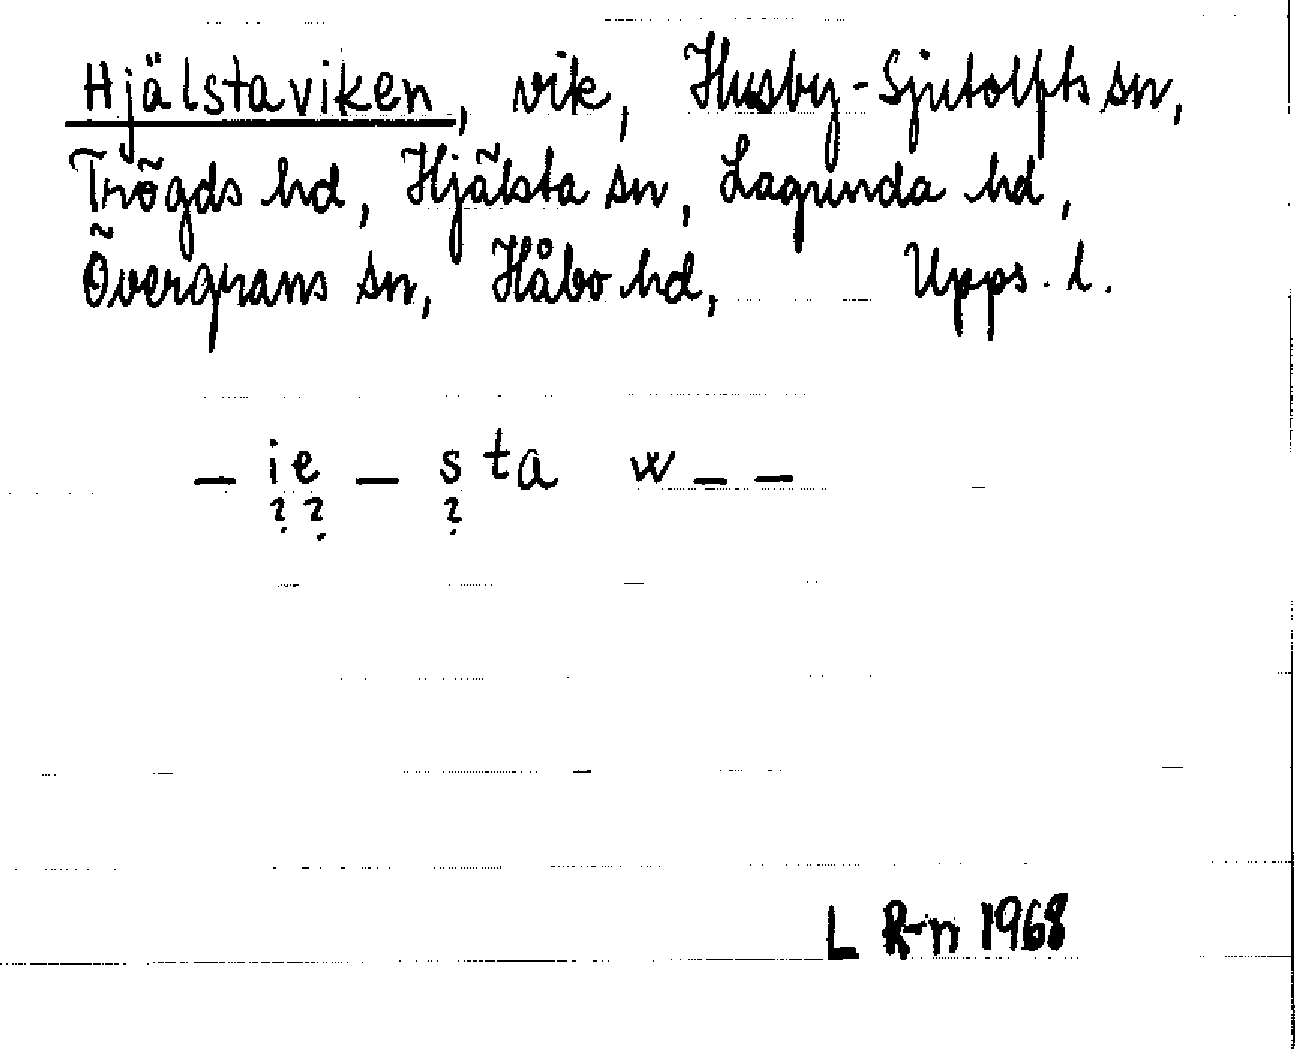 Hjälstaviken, vik, Husby-Sjutolfts sn,
Trögds hd, Hjälsta sn, Lagunda hd,
Övergrans sn, Håbo hd, Upps. l.
_ ie _ sta w _ _
? ? ?
L R-n 1968